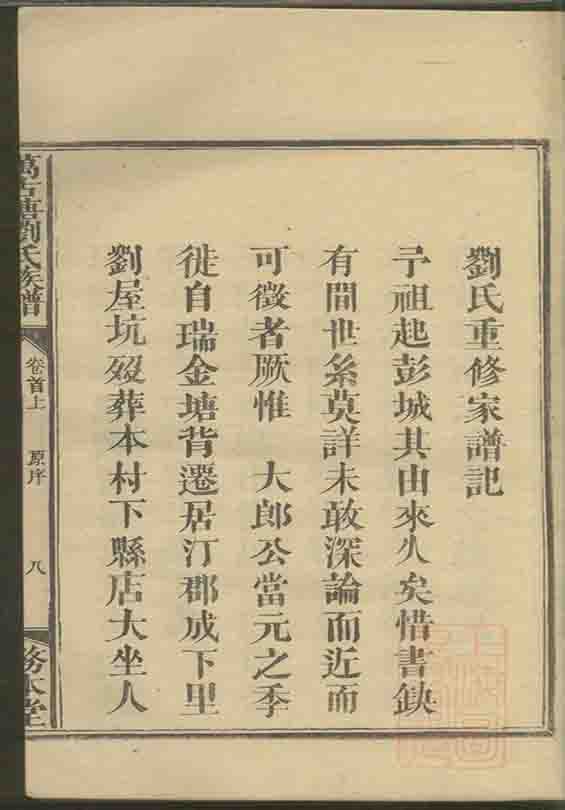 劉氏重修家譜記
予祖起彭城其由來久矣惜書缺
有間世系莫詳未敢深論而近而
可徵者厥惟　大郎公當元之季
徙自瑞金塘背遷居汀郡成下里
劉屋坑歿葬本村下縣店大坐人
萬古塘劉氏族譜
卷首上
原序
八
務本堂